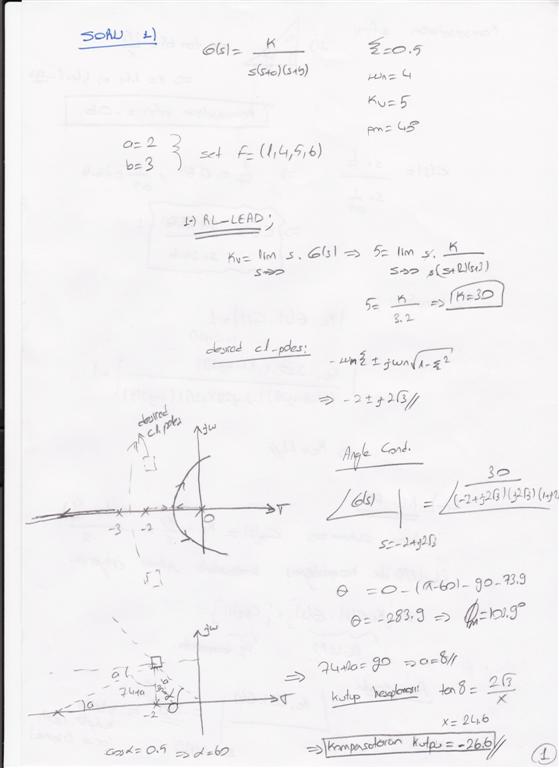 SORU 1)
G(s) = K / s(s+a)(s+b)
ξ=0.5
wn=4
Kv=5
pm=45°
a=2
b=3
set F=(1,4,5,6)
1-) RL-LEAD;
Kv= lim s→0 s. G(s) ⇒ 5= lim s→0 s. K / s(s+2)(s+3)
5= K / 3.2 ⇒ K=30
desired cl-poles:
-wnξ ± jwn√1-ξ²
⇒ -2±j2√3 //
desired
cl. poles
jw
-3 -2 0 σ
Angle Cond.
∠G(s) | s=-2+j2√3 = ∠ 30 / (-2+j2√3)(j2√3)(1+j2
θ =0-(π-60)-90-73.9
θ=-283.9 ⇒ =103.9°
jw
a 74+a a -2 α σ
cosα=0.5 ⇒ α=60
⇒ 74+2a=90 ⇒ a=8//
kutup tan8= 2√3 / x
x=24.6
⇒ Kompansatörün kutpu=-26.6//
1